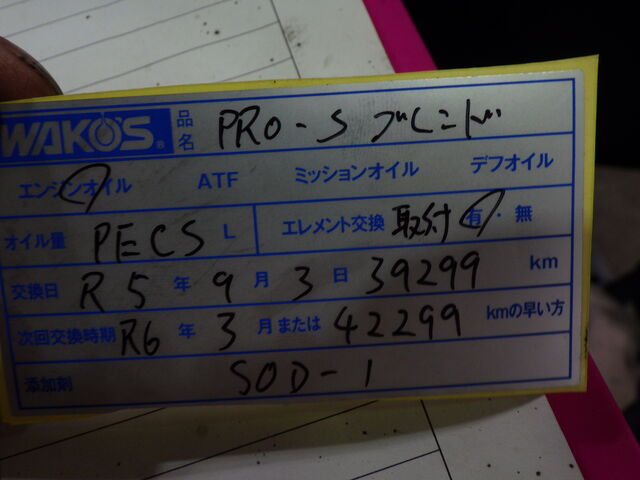 WAKO'S® 品名 PRO-S ブレンド
エンジンオイル ATF ミッションオイル デフオイル
オイル量 PECS L エレメント交換 取付 有・無
交換日 R5年 9月 3日 39299 km
次回交換時期 R6年 3月または 42299 kmの早い方
添加剤 SOD-1